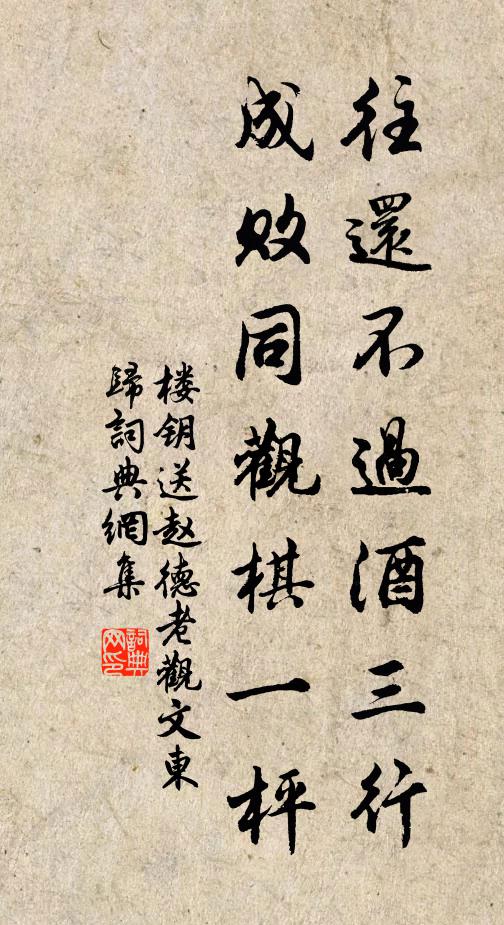 往還不過酒三行
成敗同觀棋一枰
楼钥送赵德老觀文東
歸詞典網集
詞典网印